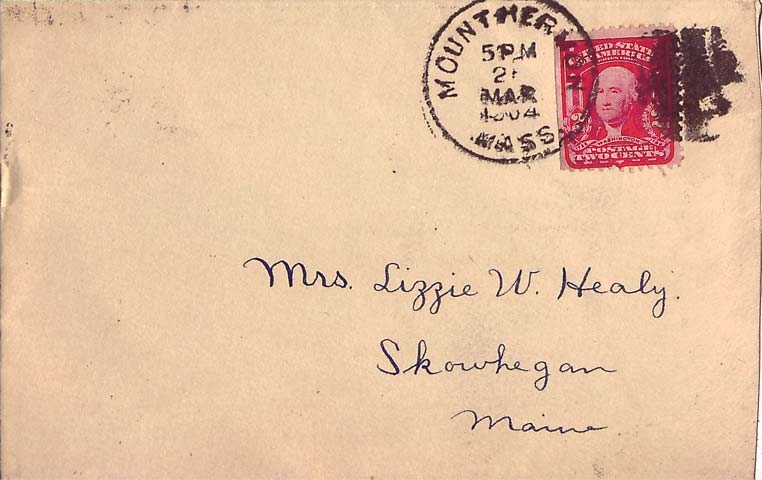 MOUNT HERMON
5 PM
MAR
1904
MASS.
UNITED STATES
OF AMERICA
WASHINGTON
POSTAGE
TWO CENTS
Mrs. Lizzie W. Healy.
Skowhegan
Maine